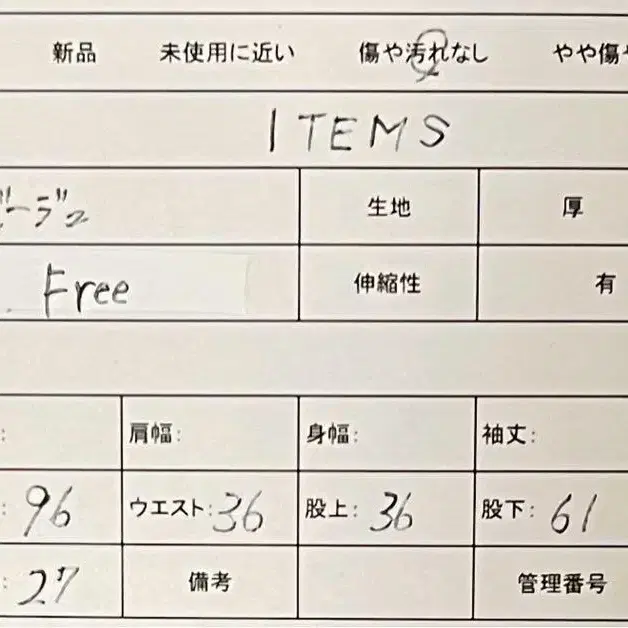 新品 未使用に近い 傷や汚れなし やや傷や
ITEMS
生地 厚
Free 伸縮性 有
: 肩幅: 身幅: 袖丈:
: 96 ウエスト: 36 股上: 36 股下: 61
: 27 備考 管理番号